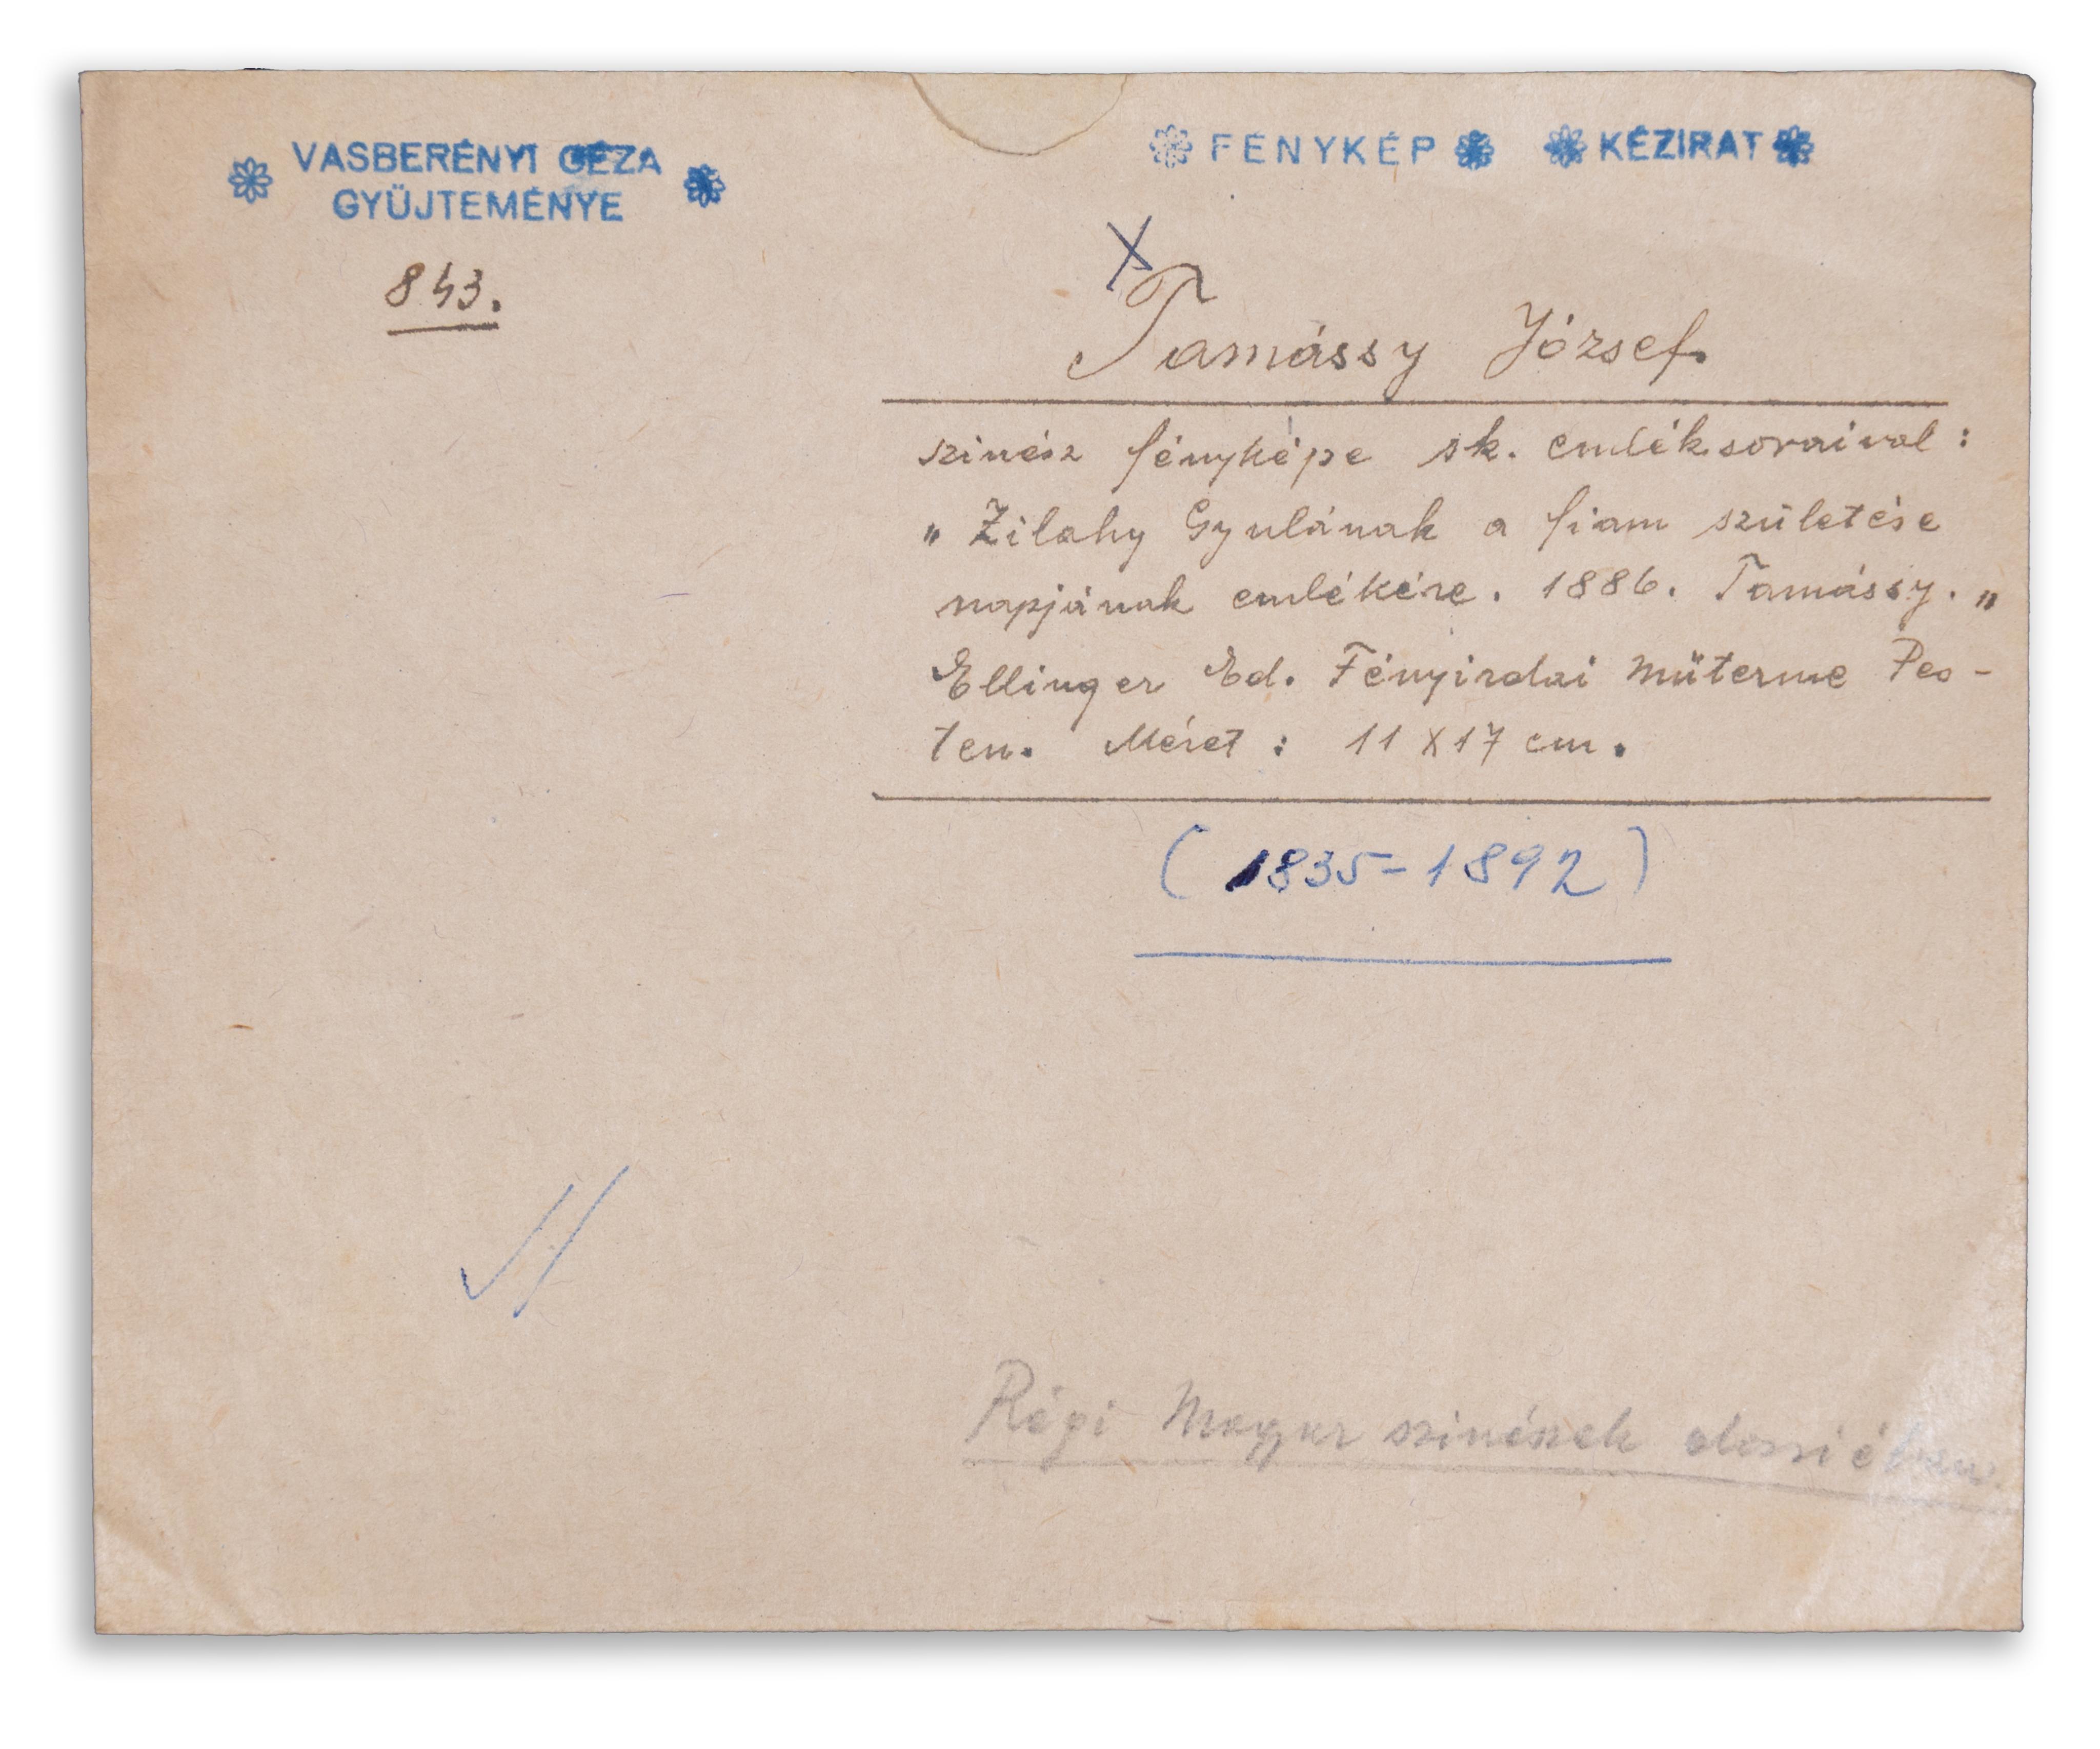 VASBERÉNYI GÉZA
GYÜJTEMÉNYE
FÉNYKÉP KÉZIRAT
843.
X
Tamássy József.
szinész fényképe sk. emléksoraival :
„ Zilahy Gyulának a fiam születése
napjának emlékére. 1886. Tamássy. "
Ellinger Ed. Fényirdai Műterme Pes-
ten. Méret : 11 X 17 cm.
(1835-1892)
Régi Magyar szinészek dossiéban.